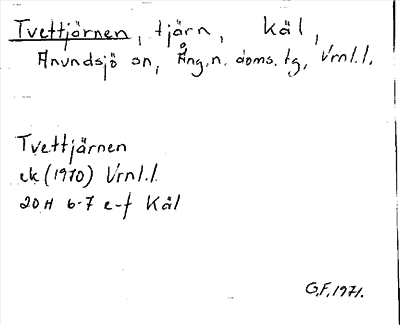 Tvettjärnen, tjärn, Käl,
Anundsjö sn, Ång.n. doms.tg, Vrnl.l.
Tvettjärnen
ek (1970) Vrnl.l.
20H 6-7 e-f Käl
G.F. 1971.